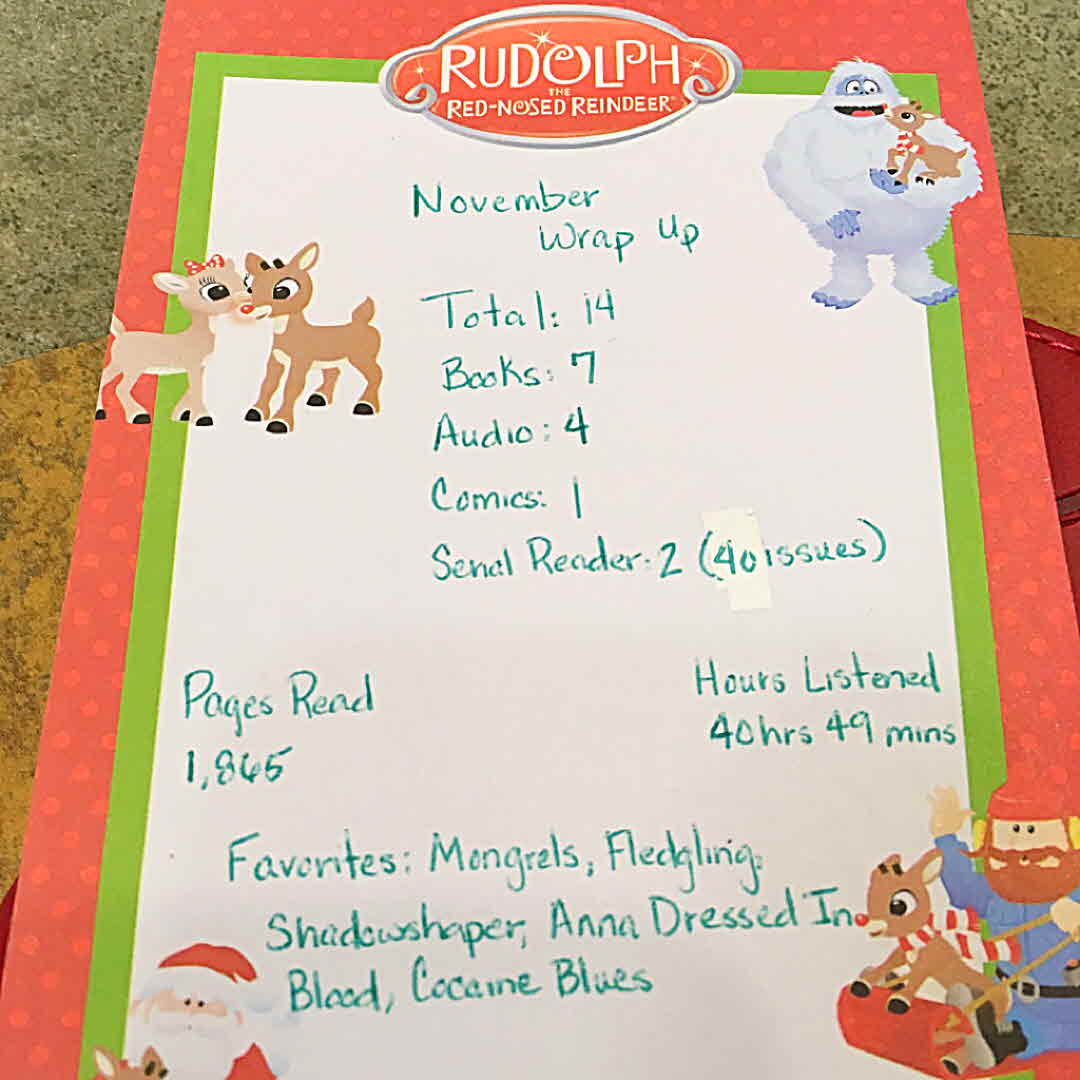 RUDOLPH
THE
RED-NOSED REINDEER
November
Wrap Up
Total: 14
Books: 7
Audio: 4
Comics: 1
Serial Reader: 2 (40 issues)
Pages Read
1,865
Hours Listened
40hrs 49 mins
Favorites: Mongrels, Fledgling,
Shadowshaper, Anna Dressed In
Blood, Cocaine Blues